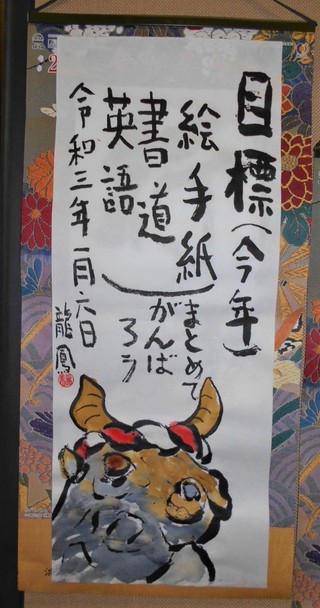 目標(今年)
絵手紙
書道
英語
まとめて
がんばろう
令和三年一月六日
龍鳳